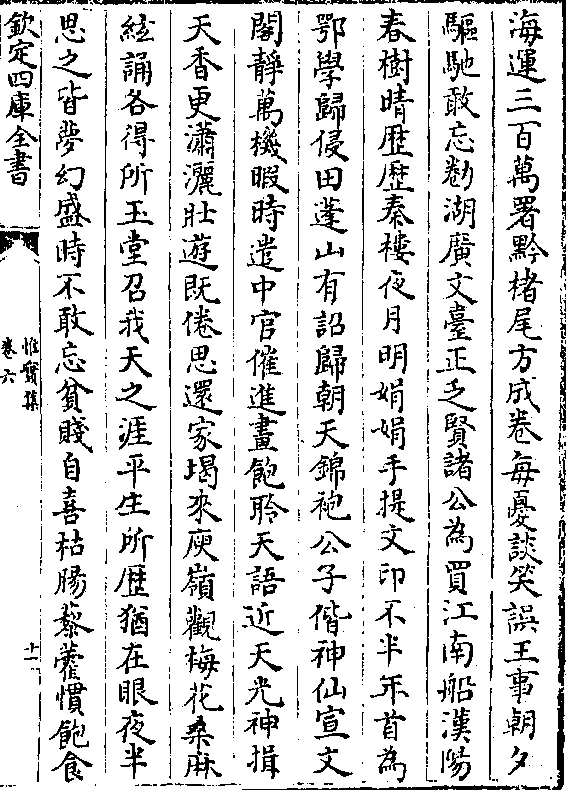 海運三百萬署黔楮尾方成卷每憂談笑誤王事朝夕
驅馳敢忘勌湖廣文臺正乏賢諸公為買江南船漢陽
春樹晴歴歴秦樓夜月明娟娟手提文印不半年首為
鄂學歸侵田蓬山有詔歸朝天錦袍公子偕神仙宣文
閣靜萬機暇時遣中官催進畫飽聆天語近天光神揖
天香更瀟灑壯遊既倦思還家朅來庾嶺觀梅花桑麻
絃誦各得所玉堂召我天之涯平生所歴猶在眼夜半
思之皆夢幻盛時不敢忘貧賤自喜枯腸藜藿慣飽食
欽定四庫全書
惟實集
卷六
十一